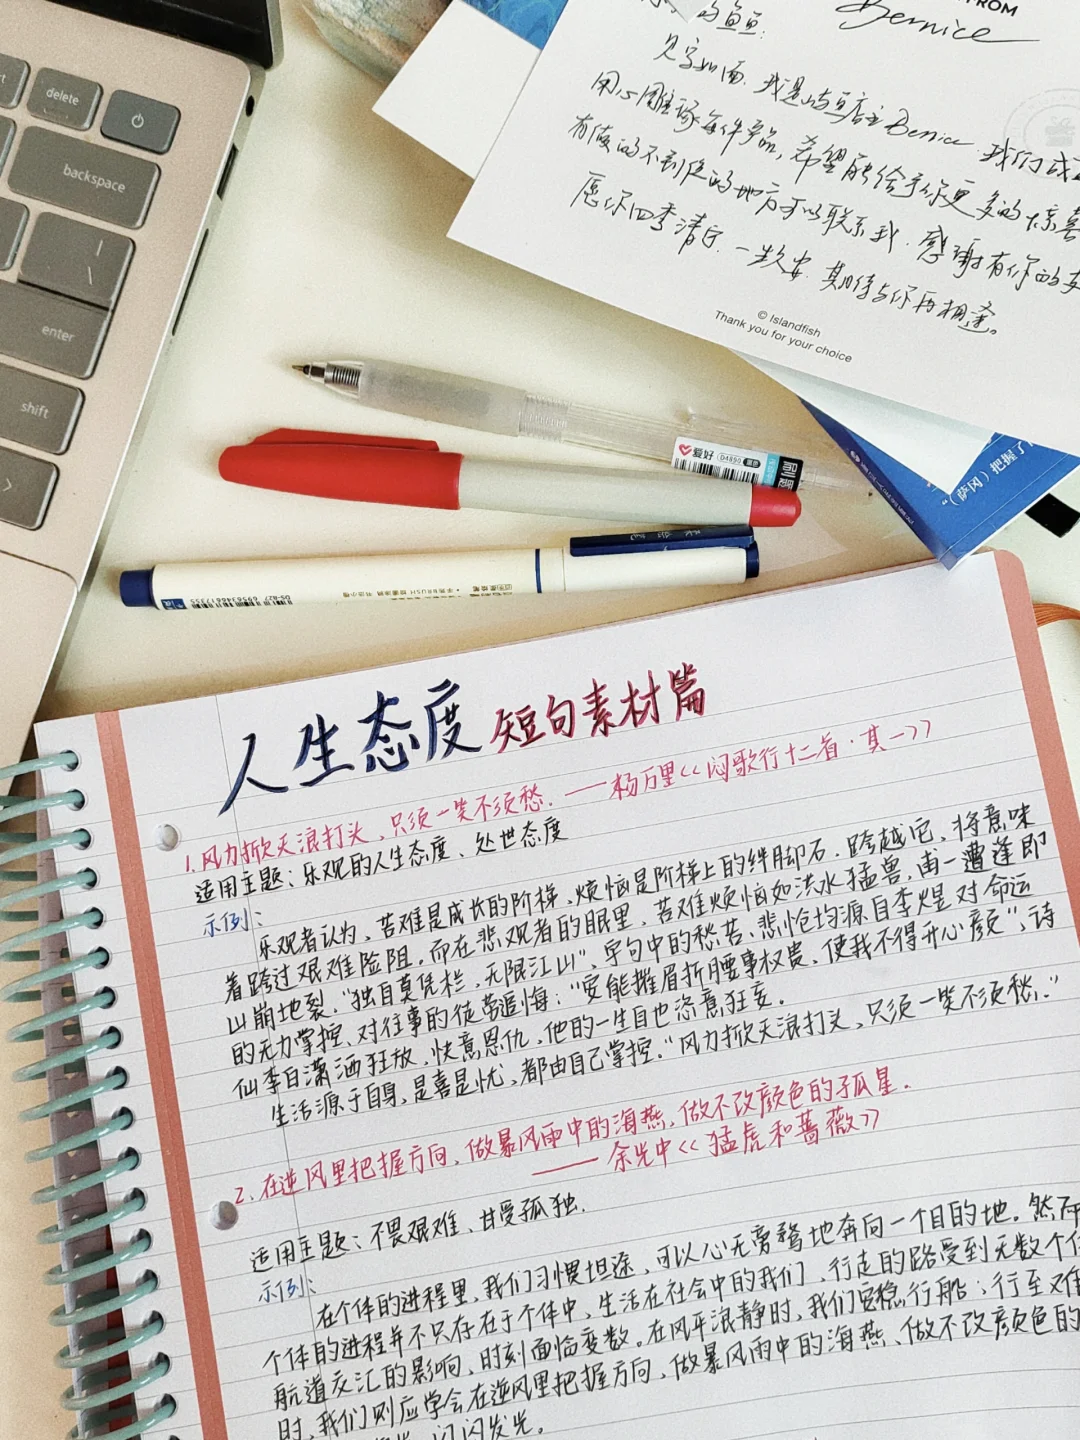 delete
backspace
enter
shift
FROM
Bernice
的鱼鱼:
见字如面. 我是屿鱼店主Bernice. 我们
用心雕琢每件产品, 希望能给予你更多的惊喜
有做的不到位的地方可以联系我. 感谢有你的支
愿你四季清宁. 一生久安. 期待与你再相逢。
© Islandfish
Thank you for your choice
爱好
04890
(萨冈) 把握了
6956346617355
人生态度 短句素材篇
1.风力掀天浪打头、只须一笑不须愁. ——杨万里<<闷歌行十二首·其一>>
适用主题: 乐观的人生态度、处世态度
示例:
乐观者认为, 苦难是成长的阶梯, 烦恼是阶梯上的绊脚石. 跨越它, 将意味
着跨过艰难险阻. 而在悲观者的眼里, 苦难烦恼如洪水猛兽, 甫一遭逢即
山崩地裂. "独自莫凭栏, 无限江山", 字句中的愁苦、悲怆均源自李煜对命运
的无力掌控、对往事的徒劳追悔; "安能摧眉折腰事权贵, 使我不得开心颜", 诗
仙李白潇洒狂放、快意恩仇, 他的一生自也恣意狂妄.
生活源于自身, 是喜是忧, 都由自己掌控. "风力掀天浪打头, 只须一笑不须愁."
2.在逆风里把握方向, 做暴风雨中的海燕, 做不改颜色的孤星.
——余光中<<猛虎和蔷薇>>
适用主题: 不畏艰难、甘受孤独.
示例:
在个体的进程里, 我们习惯坦途, 可以心无旁骛地奔向一个目的地. 然而
个体的进程并不只存在于个体中, 生活在社会中的我们, 行走的路受到无数个体
航道交汇的影响, 时刻面临变数. 在风平浪静时, 我们安稳行船; 行至难
时, 我们则应学会在逆风里把握方向, 做暴风雨中的海燕、做不改颜色的
闪闪发光.